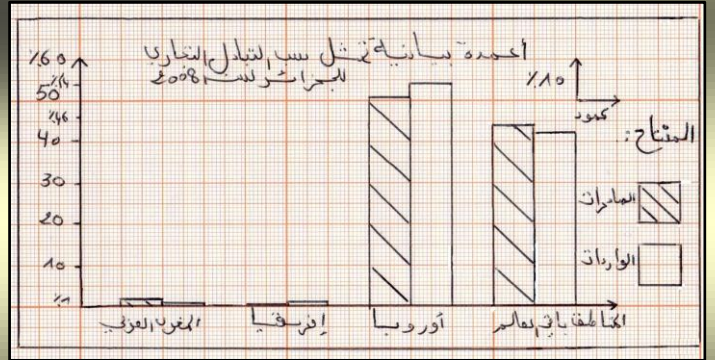 أعمدة بيانية تمثل نسب التبادل التجاري
للجزائر لسنة 2008
%60
50
40
30
20
10
%1
%10
عمود
المفتاح:
الصادرات
الواردات
المغرب العربي
إفريقيا
أوروبا
باقي العالم